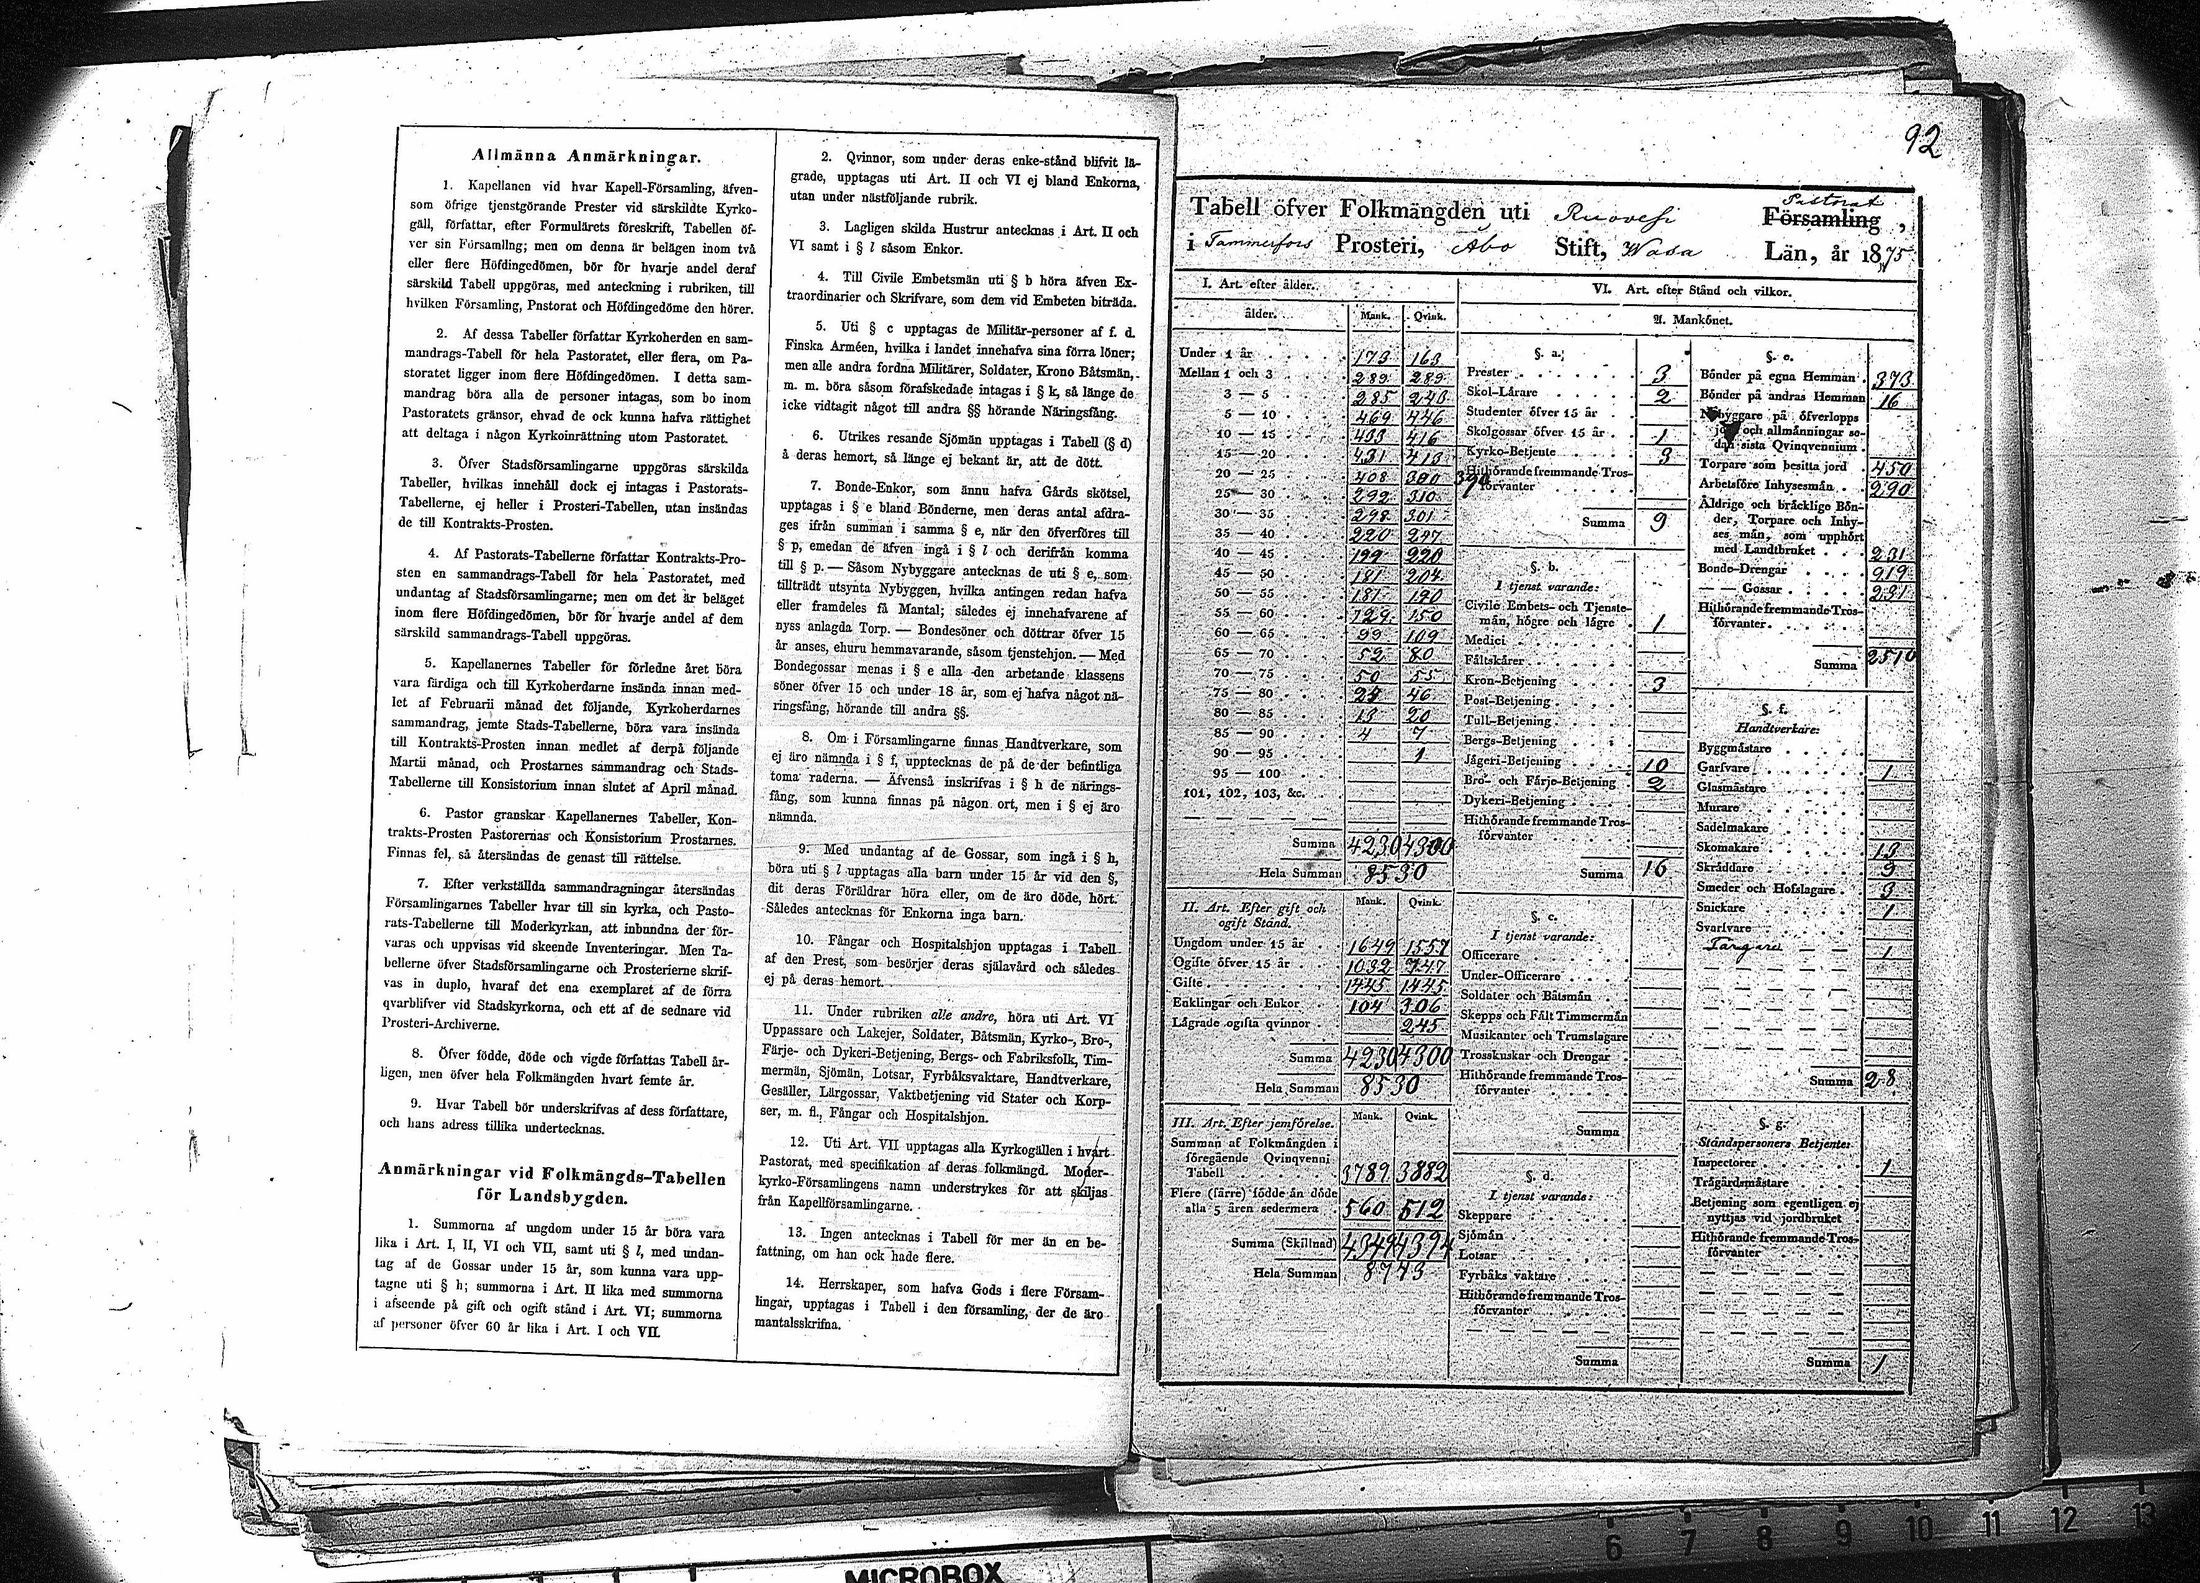 Allmänna Anmärkningar.
1. Kapellanen vid hvar Kapell-Församling, äfven-
som öfrige tjenstgörande Prester vid särskildte Kyrko-
gäll, författar, efter Formulärets föreskrift, Tabellen öf-
ver sin Församling; men om denna är belägen inom två
eller flere Höfdingedömen, bör för hvarje andel deraf
särskild Tabell uppgöras, med anteckning i rubriken, till
hvilken Församling, Pastorat och Höfdingedöme den hörer.
2. Af dessa Tabeller författar Kyrkoherden en sam-
mandrags-Tabell för hela Pastoratet, eller flera, om Pa-
storatet ligger inom flere Höfdingedömen. I detta sam-
mandrag böra alla de personer intagas, som bo inom
Pastoratets gränsor, ehvad de ock kunna hafva rättighet
att deltaga i någon Kyrkoinrättning utom Pastoratet.
3. Öfver Stadsförsamlingarne uppgöras särskilda
Tabeller, hvilkas innehåll dock ej intages i Pastorats-
Tabellerne, ej heller i Prosteri-Tabellen, utan insändas
de till Kontrakts-Prosten.
4. Af Pastorats-Tabellerne författar Kontrakts-Pro-
sten en sammandrags-Tabell för hela Pastoratet, med
undantag af Stadsförsamlingarne; men om det är beläget
inom flere Höfdingedömen, bör för hvarje andel af dem
särskild sammandrags-Tabell uppgöras.
5. Kapellanernes Tabeller för förledne året böra
vara färdiga och till Kyrkoherdarne insända innan med-
let af Februarii månad det följande, Kyrkoherdarnes
sammandrag, jemte Stads-Tabellerne, böra vara insända
till Kontrakts-Prosten innan medlet af derpå följande
Martii månad, och Prostarnes sammandrag och Stads-
Tabellerne till Konsistorium innan slutet af April månad.
6. Pastor granskar Kapellanernes Tabeller, Kon-
trakts-Prosten Pastorernas och Konsistorium Prostarnes.
Finnas fel, så återsändas de genast till rättelse.
7. Efter verkställda sammandragningar återsändas
Församlingarnes Tabeller hvar till sin kyrka, och Pasto-
rats-Tabellerne till Moderkyrkan, att inbundna der för-
varas och uppvisas vid skeende Inventeringar. Men Ta-
bellerne öfver Stadsförsamlingarne och Prosterierne skrif-
vas in duplo, hvaraf det ena exemplaret af de förra
qvarblifver vid Stadskyrkorna, och ett af de sednare vid
Prosteri-Archiverne.
8. Öfver födde, döde och vigde författas Tabell år-
ligen, men öfver hela Folkmängden hvart femte år.
9. Hvar Tabell bör underskrifvas af dess författare,
och hans adress tillika undertecknas.
Anmärkningar vid Folkmängds-Tabellen
för Landsbygden.
1. Summorna af ungdom under 15 år böra vara
lika i Art. I, II, VI och VII, samt uti § l, med undan-
tag af de Gossar under 15 år, som kunna vara upp-
tagne uti § h; summorna i Art. II lika med summorna
i afseende på gift och ogift stånd i Art. VI; summorna
af personer öfver 60 år lika i Art. I och VII.
2. Qvinnor, som under deras enke-stånd blifvit lä-
grade, upptagas uti Art. II och VI ej bland Enkorna,
utan under nästföljande rubrik.
3. Lagligen skilda Hustrur antecknas i Art. II och
VI samt i § l såsom Enkor.
4. Till Civile Embetsmän uti § b höra äfven Ex-
traordinarier och Skrifvare, som dem vid Embeten biträda.
5. Uti § c upptagas de Militär-personer af f. d.
Finska Arméen, hvilka i landet innehafva sina förra löner;
men alle andra fordna Militärer, Soldater, Krono Båtsmän,
m. m. böra såsom förafskedade intagas i § k, så länge de
icke vidtagit något till andra §§ hörande Näringsfång.
6. Utrikes resande Sjömän upptagas i Tabell (§ d)
å deras hemort, så länge ej bekant är, att de dött.
7. Bonde-Enkor, som ännu hafva Gårds skötsel,
upptagas i § e bland Bönderne, men deras antal afdra-
ges ifrån summan i samma § e, när den öfverföres till
§ p, emedan de äfven ingå i § l och derifrån komma
till § p. — Såsom Nybyggare antecknas de uti § e, som
tillträdt utsynta Nybyggen, hvilka antingen redan hafva
eller framdeles få Mantal; således ej innehafvarene af
nyss anlagda Torp. — Bondesöner och döttrar öfver 15
år anses, ehuru hemmavarande, såsom tjenstehjon. — Med
Bondegossar menas i § e alla den arbetande klassens
söner öfver 15 och under 18 år, som ej hafva något nä-
ringsfång, hörande till andra §§.
8. Om i Församlingarne finnas Handtverkare, som
ej äro nämnda i § f, upptecknas de på de der befintliga
toma raderna. — Äfvenså inskrifvas i § h de närings-
fång, som kunna finnas på någon ort, men i § ej äro
nämnda.
9. Med undantag af de Gossar, som ingå i § h,
böra uti § l upptagas alla barn under 15 år vid den §,
dit deras Föräldrar höra eller, om de äro döde, hört.
Således antecknas för Enkorna inga barn.
10. Fångar och Hospitalshjon upptagas i Tabell
af den Prest, som besörjer deras själavård och således
ej på deras hemort.
11. Under rubriken alle andre, höra uti Art. VI
Uppassare och Lakejer, Soldater, Båtsmän, Kyrko-, Bro-,
Färje- och Dykeri-Betjening, Bergs- och Fabriksfolk, Tim-
mermän, Sjömän, Lotsar, Fyrbåksvaktare, Handtverkare,
Gesäller, Lärgossar, Vaktbetjening vid Stater och Korp-
ser, m. fl., Fångar och Hospitalshjon.
12. Uti Art. VII upptagas alla Kyrkogällen i hvart
Pastorat, med specifikation af deras folkmängd. Moder-
kyrko-Församlingens namn understrykes för att skiljas
från Kapellförsamlingarne.
13. Ingen antecknas i Tabell för mer än en be-
fattning, om han ock hade flere.
14. Herrskaper, som hafva Gods i flere Försam-
lingar, upptagas i Tabell i den församling, der de äro
mantalsskrifna.
92
Pastorat
Tabell öfver Folkmängden uti Ruovesi Församling,
i Tammerfors Prosteri, Åbo Stift, Wasa Län, år 1875.
I. Art. efter ålder.
ålder. Mank. Qvink.
Under 1 år 173 163
Mellan 1 och 3 289 289
3 — 5 285 243
5 — 10 469 446
10 — 15 433 416
15 — 20 431 413
20 — 25 408 390
25 — 30 292 310
30 — 35 298 301
35 — 40 220 247
40 — 45 199 220
45 — 50 181 204
50 — 55 181 190
55 — 60 129 150
60 — 65 99 109
65 — 70 52 80
70 — 75 50 55
75 — 80 24 46
80 — 85 13 20
85 — 90 4 7
90 — 95 1
95 — 100
101, 102, 103, &c.
Summa 4230 4300
Hela Summan 8530
II. Art. Efter gift och
ogift Stånd. Mank. Qvink.
Ungdom under 15 år 1649 1557
Ogifte öfver 15 år 1032 747
Gifte 1445 1445
Enklingar och Enkor 104 306
Lägrade ogifta qvinnor 245
Summa 4230 4300
Hela Summan 8530
III. Art. Efter jemförelse. Mank. Qvink.
Summan af Folkmängden i
föregående Qvinqvenni
Tabell 3789 3882
Flere (färre) födde än döde
alla 5 åren sedermera 560 512
Summa (Skillnad) 4349 4394
Hela Summan 8743
VI. Art. efter Stånd och vilkor.
A. Mankönet.
§. a.
Prester 3
Skol-Lärare 2
Studenter öfver 15 år
Skolgossar öfver 15 år 1
Kyrko-Betjente 3
Hithörande fremmande Tros-
förvanter
Summa 9
§. b.
I tjenst varande:
Civile Embets- och Tjenste-
män, högre och lägre 1
Medici
Fältskärer
Kron-Betjening 3
Post-Betjening
Tull-Betjening
Bergs-Betjening
Jägeri-Betjening 10
Bro- och Färje-Betjening 2
Dykeri-Betjening
Hithörande fremmande Tros-
förvanter
Summa 16
§. c.
I tjenst varande:
Officerare
Under-Officerare
Soldater och Båtsmän
Skepps och Fält Timmermän
Musikanter och Trumslagare
Trosskuskar och Drengar
Hithörande fremmande Tros-
förvanter
Summa
§. d.
I tjenst varande:
Skeppare
Sjömän
Lotsar
Fyrbåks vaktare
Hithörande fremmande Tros-
förvanter
Summa
§. e.
Bönder på egna Hemman 373
Bönder på andras Hemman 16
Nybyggare på öfverlopps
jord och allmänningar se-
dan sista Qvinqvennium
Torpare som besitta jord 450
Arbetsföre Inhysesmän 290
Åldrige och bräcklige Bön-
der, Torpare och Inhy-
ses män, som upphört
med Landtbruket 231
Bonde-Drengar 919
— — Gossar 231
Hithörande fremmande Tros-
förvanter
Summa 2510
§. f.
Handtverkare:
Byggmästare
Garfvare 1
Glasmästare
Murare
Sadelmakare
Skomakare 13
Skräddare 9
Smeder och Hofslagare 3
Snickare 1
Svarfvare
Färgare 1
Summa 28
§. g.
Ståndspersoners Betjente:
Inspectorer 1
Trägårdsmästare
Betjening som egentligen ej
nyttjas vid jordbruket
Hithörande fremmande Tros-
förvanter
Summa 1
6 7 8 9 10 11 12 13
MICROBOX